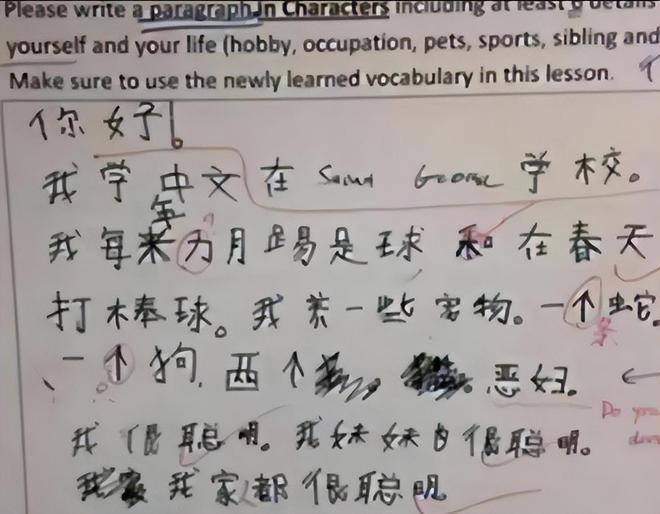 Please write a paragraph in Characters including at least 6 details
yourself and your life (hobby, occupation, pets, sports, sibling and
Make sure to use the newly learned vocabulary in this lesson.
你好!
我学中文在 Saint George 学校。
年
我每来为月踢是球和在春天
打棒球。我养一些宠物。一个蛇.
条
一个狗, 两个
我很聪明。我妹妹也很聪明。
我家都很聪明
Do you